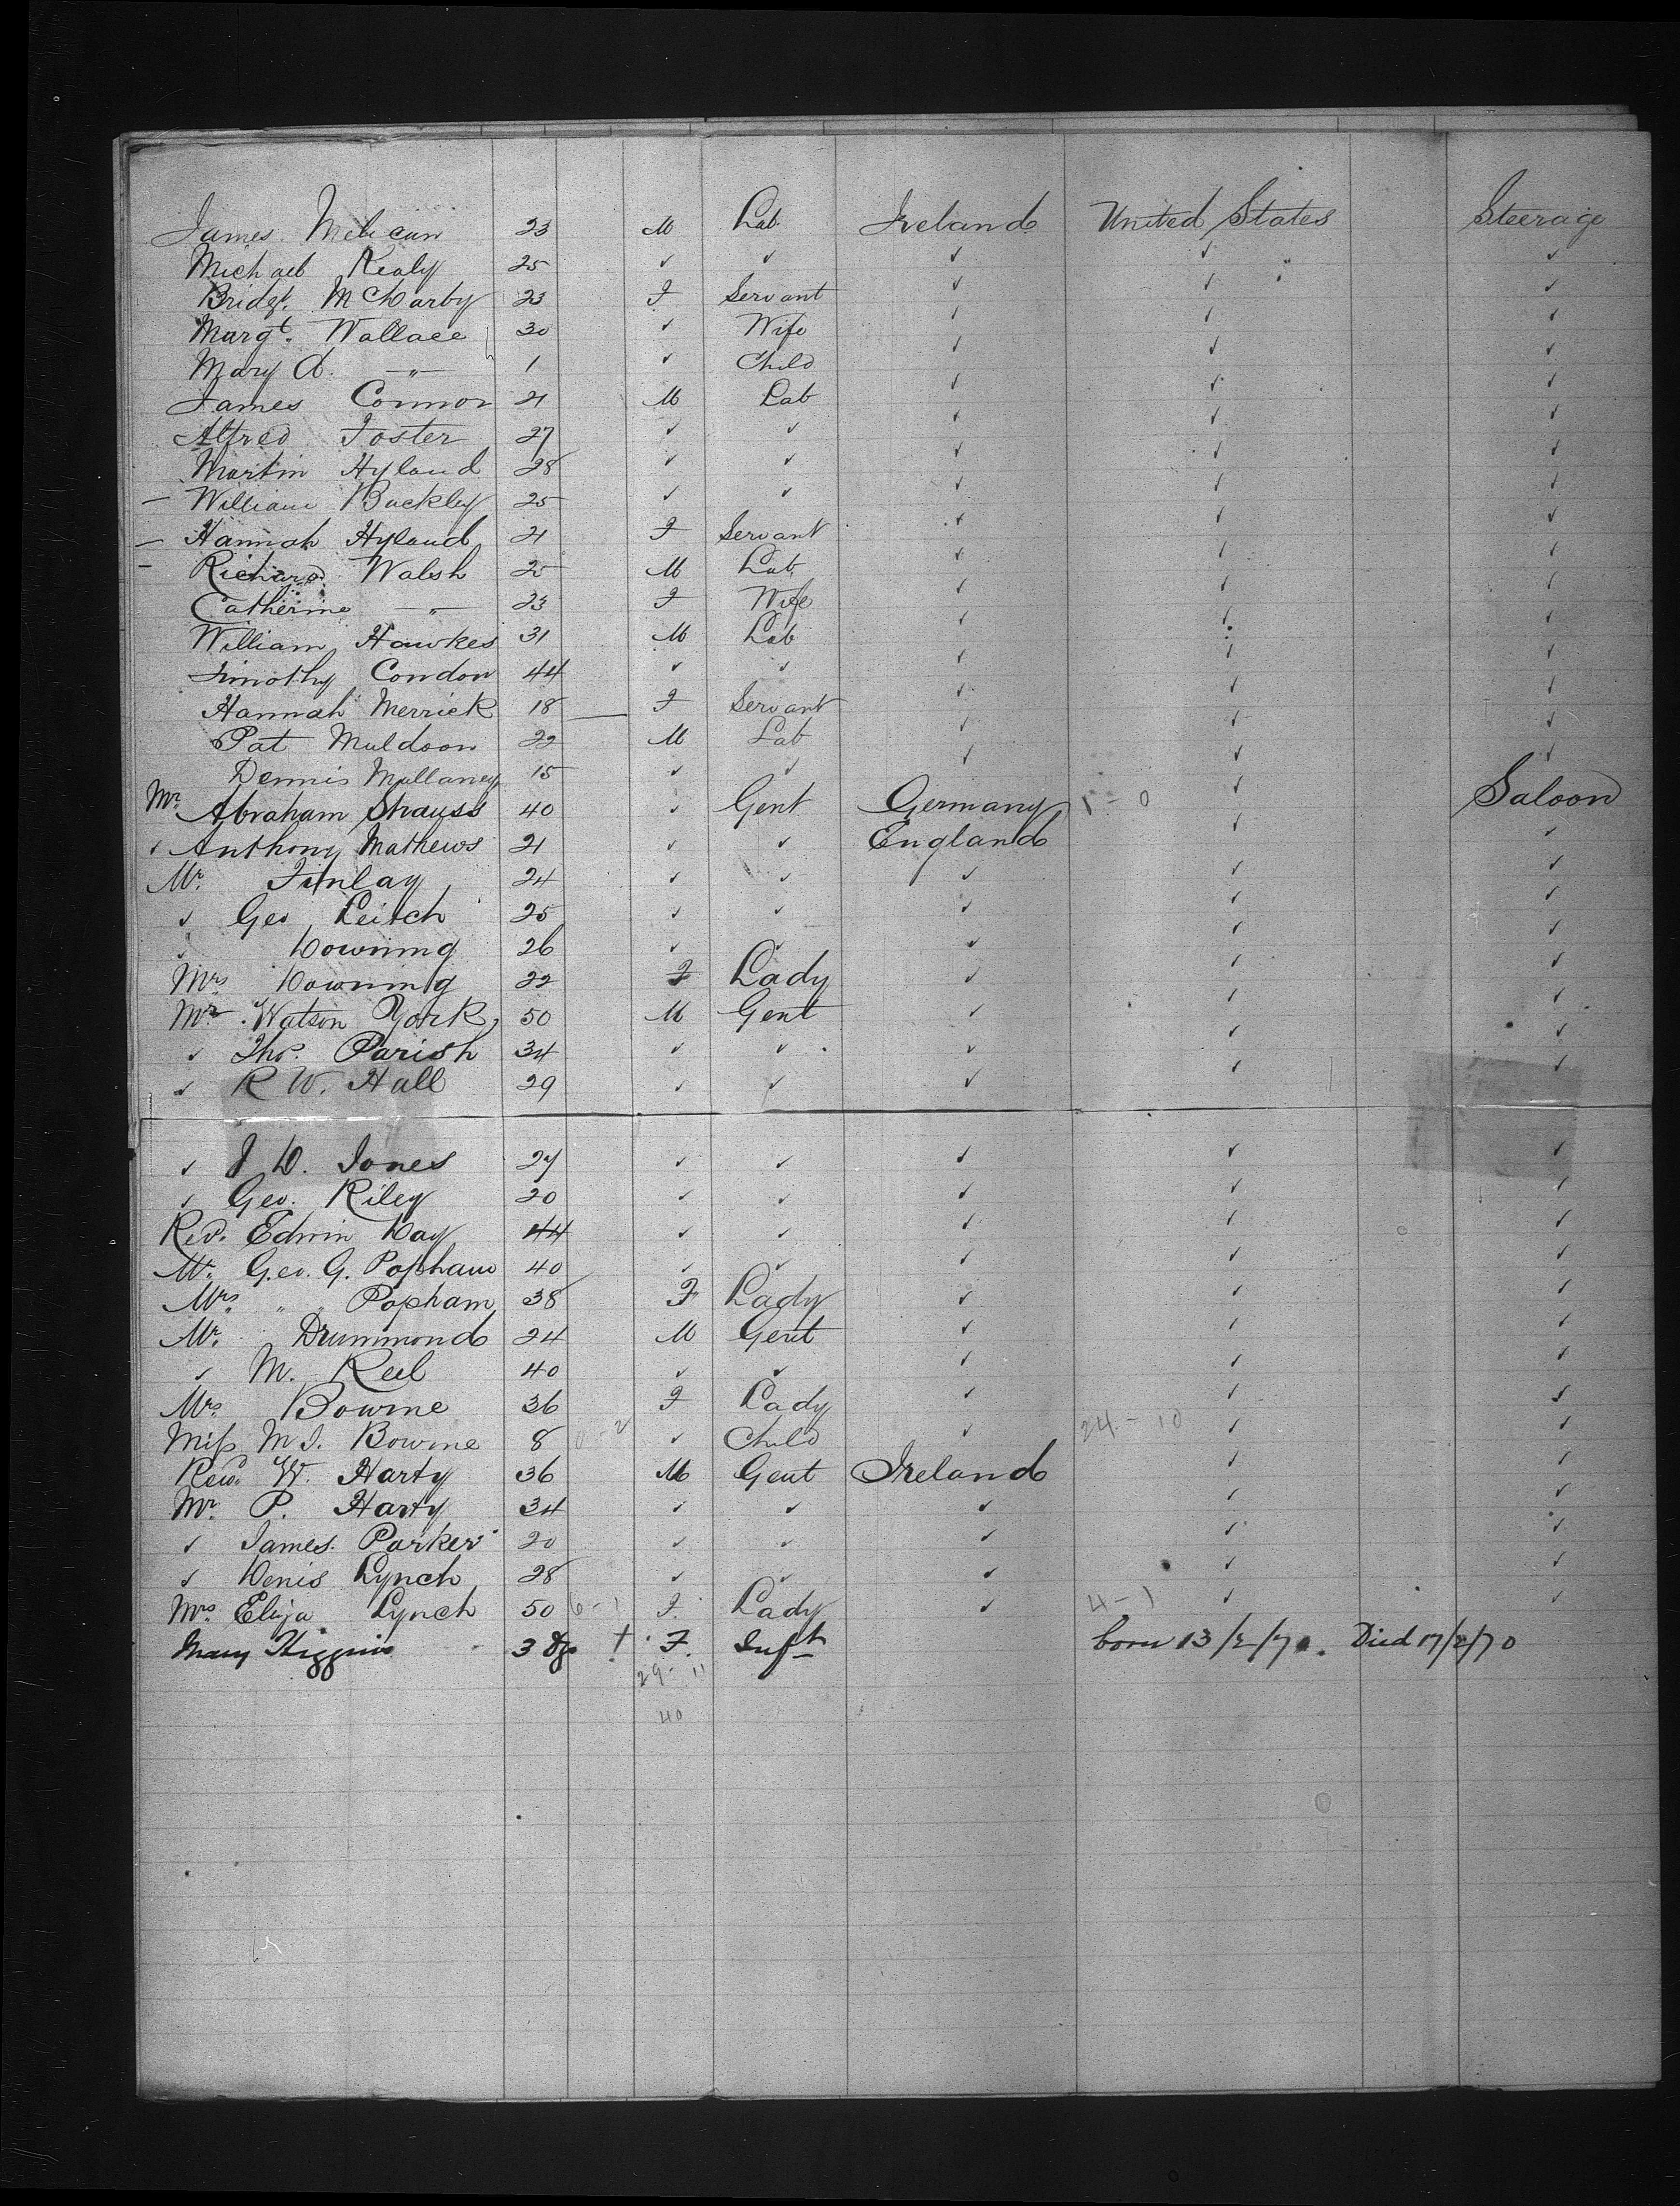 James Melican 23 M Lab. Ireland United States Steerage
Michael Kealy 25 ✓ ✓ ✓ ✓ ✓
Bridgt. McDarby 23 F Servant ✓ ✓ ✓
Margt. Wallace 30 ✓ Wife ✓ ✓ ✓
Mary A. —"— 1 ✓ Child ✓ ✓ ✓
James Connor 21 M Lab ✓ ✓ ✓
Alfred Foster 27 ✓ ✓ ✓ ✓ ✓
Martin Hyland 28 ✓ ✓ ✓ ✓ ✓
— William Buckley 25 ✓ ✓ ✓ ✓ ✓
— Hannah Hyland 21 F Servant ✓ ✓ ✓
— Richard Walsh 25 M Lab ✓ ✓ ✓
Catherine —"— 23 F Wife ✓ ✓ ✓
William Hawkes 31 M Lab ✓ ✓ ✓
Timothy Condon 44 ✓ ✓ ✓ ✓ ✓
Hannah Merrick 18 — F Servant ✓ ✓ ✓
Pat Muldoon 22 M Lab ✓ ✓ ✓
Dennis Mullaney 15 ✓ ✓ ✓ ✓ ✓
Mr. Abraham Strauss 40 ✓ Gent Germany 1 - 0 ✓ Saloon
✓ Anthony Mathews 21 ✓ ✓ England ✓ ✓
Mr. Finlay 24 ✓ ✓ ✓ ✓ ✓
✓ Geo Leitch 25 ✓ ✓ ✓ ✓ ✓
✓ Downing 26 ✓ ✓ ✓ ✓ ✓
Mrs Downing 22 F Lady ✓ ✓ ✓
Mr. Watson York, 50 M Gent ✓ ✓ ✓
✓ Tho. Parish 34 ✓ ✓ ✓ ✓ ✓
✓ R W. Hall 29 ✓ ✓ ✓ ✓ ✓
✓ J D. Jones 27 ✓ ✓ ✓ ✓ ✓
✓ Geo. Riley 20 ✓ ✓ ✓ ✓ ✓
Revd. Edwin Day 44 ✓ ✓ ✓ ✓ ✓
Mr. Geo. G. Popham 40 ✓ ✓ ✓ ✓ ✓
Mrs. " " Popham 38 F Lady ✓ ✓ ✓
Mr. Drummond 24 M Gent ✓ ✓ ✓
✓ M. Keel 40 ✓ ✓ ✓ ✓ ✓
Mrs. Bowrne 36 F Lady ✓ ✓ ✓
Miss M J. Bowrne 8 0 - 2 ✓ Child ✓ 24 - 10 ✓ ✓
Revd. W. Harty 36 M Gent Ireland ✓ ✓
Mr. P. Harty 34 ✓ ✓ ✓ ✓ ✓
✓ James Parker 20 ✓ ✓ ✓ ✓ ✓
✓ Denis Lynch 28 ✓ ✓ ✓ ✓ ✓
Mrs. Eliza Lynch 50 6 - 1 F. Lady ✓ 4 - 1 ✓ ✓
Mary Higgins 3 Dys † F. Inft born 13/2/70. Died 17/2/70
29 - 11
40